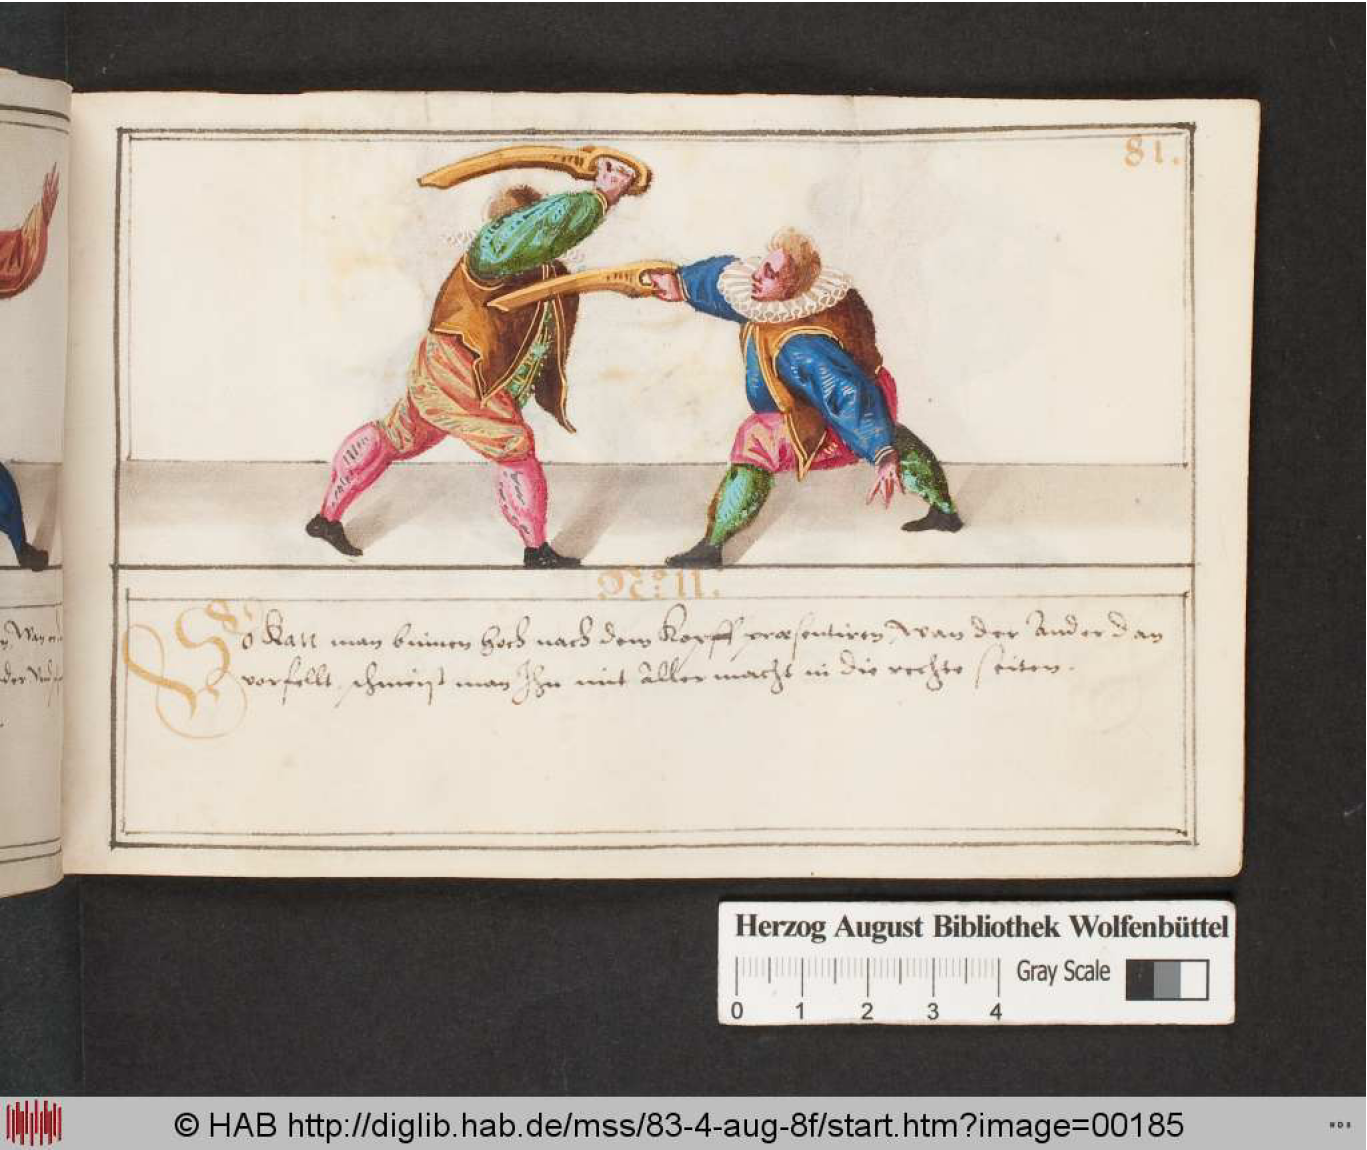 81.
No: 11.
So Kan man binnen hoch nach dem Kopff præsentiren, wan der Ander dan
vorfellt, schmeist man Ihn mit aller macht in die rechte seiten.
Herzog August Bibliothek Wolfenbüttel
Gray Scale
0 1 2 3 4
© HAB http://diglib.hab.de/mss/83-4-aug-8f/start.htm?image=00185